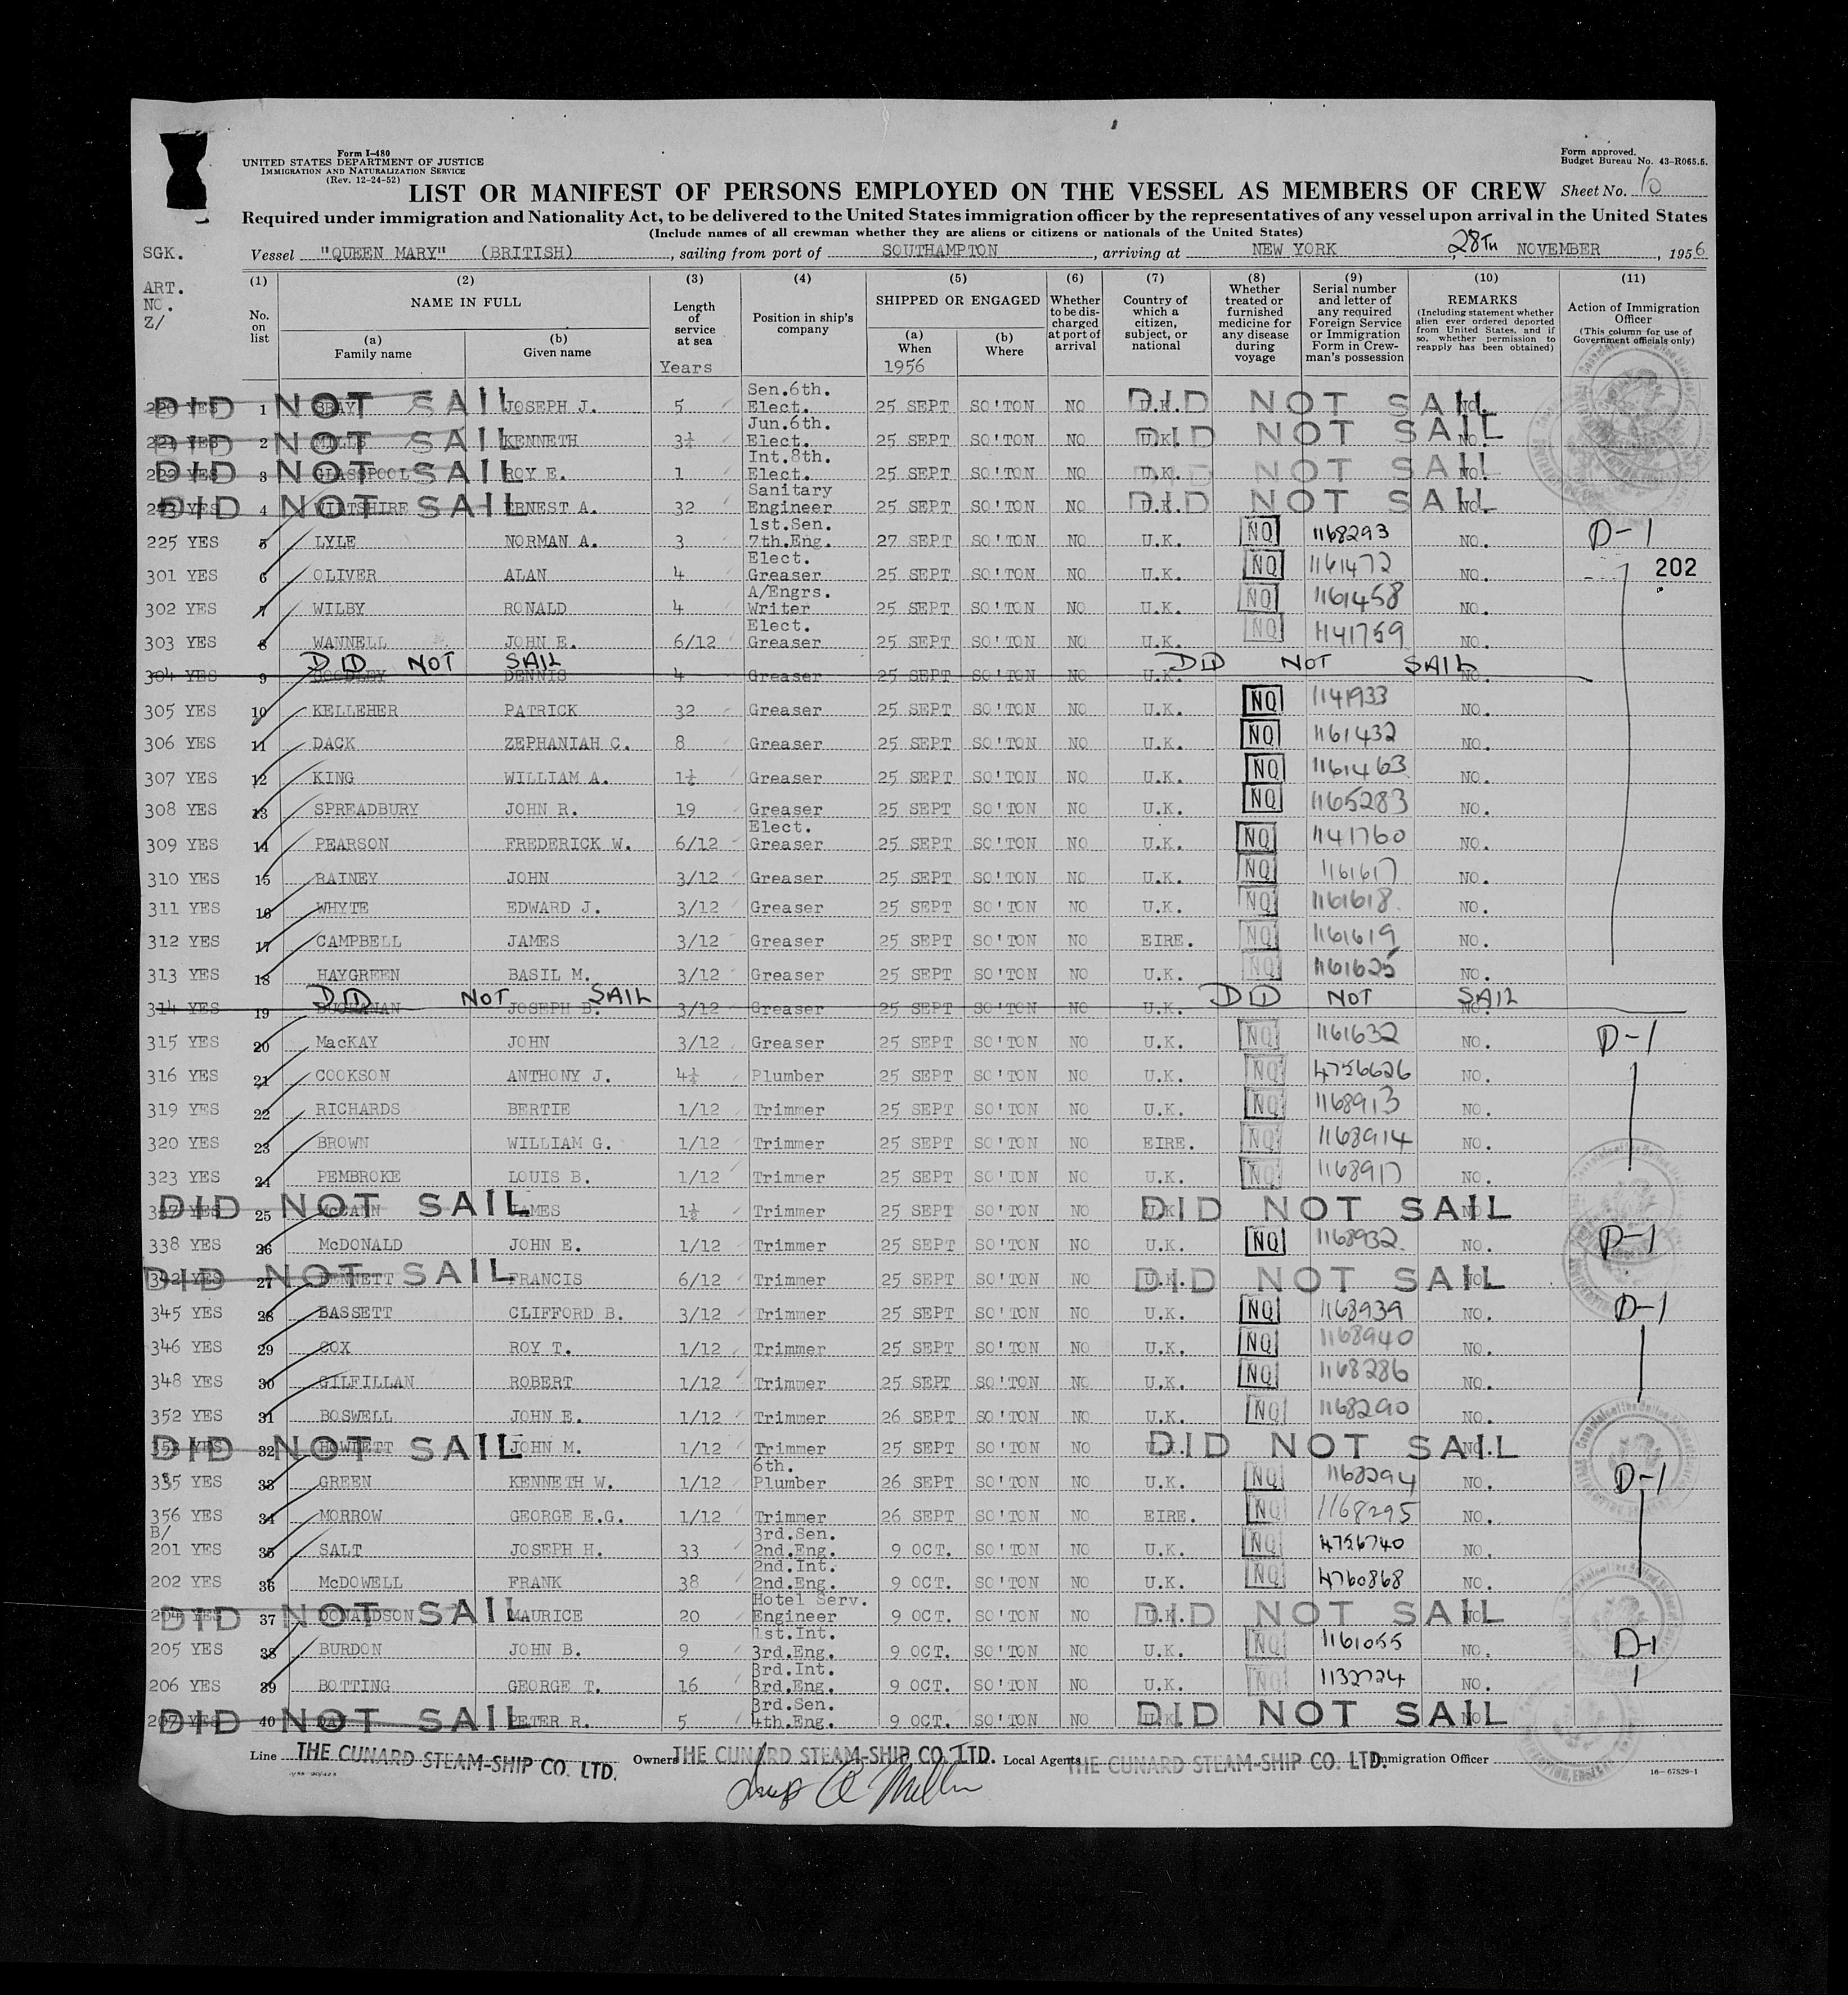 Form I-480
UNITED STATES DEPARTMENT OF JUSTICE
IMMIGRATION AND NATURALIZATION SERVICE
(Rev. 12-24-52)
Form approved.
Budget Bureau No. 43-R065.5.
LIST OR MANIFEST OF PERSONS EMPLOYED ON THE VESSEL AS MEMBERS OF CREW Sheet No. 10
Required under immigration and Nationality Act, to be delivered to the United States immigration officer by the representatives of any vessel upon arrival in the United States
(Include names of all crewman whether they are aliens or citizens or nationals of the United States)
SGK. Vessel "QUEEN MARY" (BRITISH), sailing from port of SOUTHAMPTON, arriving at NEW YORK 28TH NOVEMBER, 1956
ART. NO. Z/
(1) No. on list
(2) NAME IN FULL (a) Family name (b) Given name
(3) Length of service at sea Years
(4) Position in ship's company
(5) SHIPPED OR ENGAGED (a) When 1956 (b) Where
(6) Whether to be discharged at port of arrival
(7) Country of which a citizen, subject, or national
(8) Whether treated or furnished medicine for any disease during voyage
(9) Serial number and letter of any required Foreign Service or Immigration Form in Crewman's possession
(10) REMARKS (Including statement whether alien ever ordered deported from United States, and if so, whether permission to reapply has been obtained)
(11) Action of Immigration Officer (This column for use of Government officials only)
220 YES 1 JOSEPH J. 5 Sen.6th. Elect. 25 SEPT SO'TON NO U.K. NO. DID NOT SAIL DID NOT SAIL
221 YES 2 KENNETH 3½ Jun.6th. Elect. 25 SEPT SO'TON NO U.K. NO. DID NOT SAIL DID NOT SAIL
222 YES 3 GLASSPOOL ROY E. 1 Int.8th. Elect. 25 SEPT SO'TON NO U.K. NO. DID NOT SAIL DID NOT SAIL
223 YES 4 WILTSHIRE ERNEST A. 32 Sanitary Engineer 25 SEPT SO'TON NO U.K. NO. DID NOT SAIL DID NOT SAIL
225 YES 5 LYLE NORMAN A. 3 1st.Sen. 7th.Eng. 27 SEPT SO'TON NO U.K. NQ 1168293 NO. D-1
301 YES 6 OLIVER ALAN 4 Elect. Greaser 25 SEPT SO'TON NO U.K. NQ 1161472 NO. 202
302 YES 7 WILBY RONALD 4 A/Engrs. Writer 25 SEPT SO'TON NO U.K. NQ 1161458 NO.
303 YES 8 WANNELL JOHN E. 6/12 Elect. Greaser 25 SEPT SO'TON NO U.K. NQ 1141759 NO.
304 YES 9 DENNIS 4 Greaser 25 SEPT SO'TON NO U.K. NO. DID NOT SAIL DID NOT SAIL
305 YES 10 KELLEHER PATRICK 32 Greaser 25 SEPT SO'TON NO U.K. NQ 1141933 NO.
306 YES 11 DACK ZEPHANIAH C. 8 Greaser 25 SEPT SO'TON NO U.K. NQ 1161432 NO.
307 YES 12 KING WILLIAM A. 1½ Greaser 25 SEPT SO'TON NO U.K. NQ 1161463 NO.
308 YES 13 SPREADBURY JOHN R. 19 Greaser 25 SEPT SO'TON NO U.K. NQ 1165283 NO.
309 YES 14 PEARSON FREDERICK W. 6/12 Elect. Greaser 25 SEPT SO'TON NO U.K. NQ 1141760 NO.
310 YES 15 RAINEY JOHN 3/12 Greaser 25 SEPT SO'TON NO U.K. NQ 1161617 NO.
311 YES 16 WHYTE EDWARD J. 3/12 Greaser 25 SEPT SO'TON NO U.K. NQ 1161618 NO.
312 YES 17 CAMPBELL JAMES 3/12 Greaser 25 SEPT SO'TON NO EIRE. NQ 1161619 NO.
313 YES 18 HAYGREEN BASIL M. 3/12 Greaser 25 SEPT SO'TON NO U.K. NQ 1161625 NO.
314 YES 19 BUCHANAN JOSEPH B. 3/12 Greaser 25 SEPT SO'TON NO U.K. NO. DID NOT SAIL DID NOT SAIL
315 YES 20 MacKAY JOHN 3/12 Greaser 25 SEPT SO'TON NO U.K. NQ 1161632 NO. D-1
316 YES 21 COOKSON ANTHONY J. 4½ Plumber 25 SEPT SO'TON NO U.K. NQ 4756626 NO.
319 YES 22 RICHARDS BERTIE 1/12 Trimmer 25 SEPT SO'TON NO U.K. NQ 1168913 NO.
320 YES 23 BROWN WILLIAM G. 1/12 Trimmer 25 SEPT SO'TON NO EIRE. NQ 1168914 NO.
323 YES 24 PEMBROKE LOUIS B. 1/12 Trimmer 25 SEPT SO'TON NO U.K. NQ 1168917 NO.
YES 25 McCANN JAMES 1½ Trimmer 25 SEPT SO'TON NO U.K. NO. DID NOT SAIL DID NOT SAIL
338 YES 26 McDONALD JOHN E. 1/12 Trimmer 25 SEPT SO'TON NO U.K. NQ 1168932 NO. D-1
342 YES 27 FRANCIS 6/12 Trimmer 25 SEPT SO'TON NO U.K. NO. DID NOT SAIL DID NOT SAIL
345 YES 28 BASSETT CLIFFORD B. 3/12 Trimmer 25 SEPT SO'TON NO U.K. NQ 1168939 NO. D-1
346 YES 29 COX ROY T. 1/12 Trimmer 25 SEPT SO'TON NO U.K. NQ 1168940 NO.
348 YES 30 GILFILLAN ROBERT 1/12 Trimmer 25 SEPT SO'TON NO U.K. NQ 1168286 NO.
352 YES 31 BOSWELL JOHN E. 1/12 Trimmer 26 SEPT SO'TON NO U.K. NQ 1168290 NO.
353 YES 32 HOWLETT JOHN M. 1/12 Trimmer 25 SEPT SO'TON NO U.K. NO. DID NOT SAIL DID NOT SAIL
335 YES 33 GREEN KENNETH W. 1/12 6th. Plumber 26 SEPT SO'TON NO U.K. NQ 1168294 NO. D-1
356 YES 34 MORROW GEORGE E.G. 1/12 Trimmer 26 SEPT SO'TON NO EIRE. NQ 1168295 NO.
B/
201 YES 35 SALT JOSEPH H. 33 3rd.Sen. 2nd.Eng. 9 OCT. SO'TON NO U.K. NQ 4756740 NO.
202 YES 36 McDOWELL FRANK 38 2nd.Int. 2nd.Eng. 9 OCT. SO'TON NO U.K. NQ 4760868 NO.
204 YES 37 DONALDSON MAURICE 20 Hotel Serv. Engineer 9 OCT. SO'TON NO U.K. NO. DID NOT SAIL DID NOT SAIL
205 YES 38 BURDON JOHN B. 9 1st.Int. 3rd.Eng. 9 OCT. SO'TON NO U.K. NQ 1161055 NO. D-1
206 YES 39 BOTTING GEORGE T. 16 3rd.Int. 3rd.Eng. 9 OCT. SO'TON NO U.K. NQ 1132724 NO.
207 YES 40 PETER R. 5 3rd.Sen. 4th.Eng. 9 OCT. SO'TON NO U.K. NO. DID NOT SAIL DID NOT SAIL
Line THE CUNARD STEAM-SHIP CO. LTD. Owners THE CUNARD STEAM-SHIP CO. LTD. Local Agents THE CUNARD STEAM-SHIP CO. LTD. Immigration Officer
16-67829-1